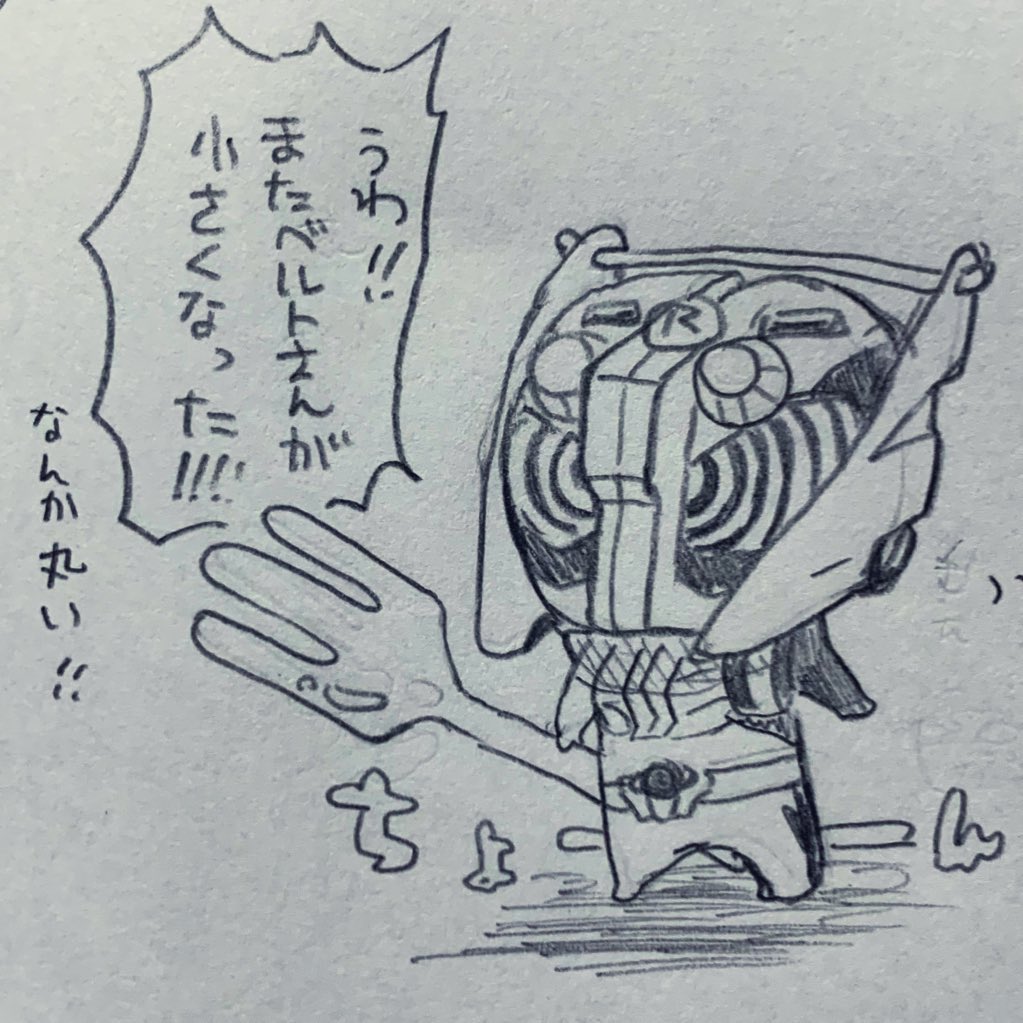 うわ!!
またベルトさんが
小さくなった!!!
なんか丸い!!
R
ちょーん